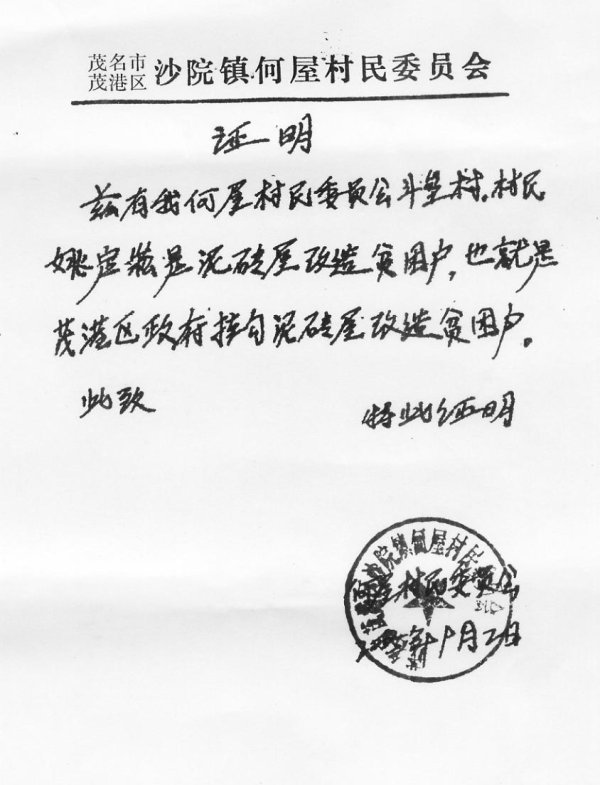 茂名市
茂港区 沙院镇何屋村民委员会
证明
兹有我何屋村民委员会斗垒村,村民
姚定崧是泥砖屋改造贫困户,也就是
茂港区政府挂勾泥砖屋改造贫困户。
此致
特此证明
沙院镇何屋村民
屋村民委员会
月二日